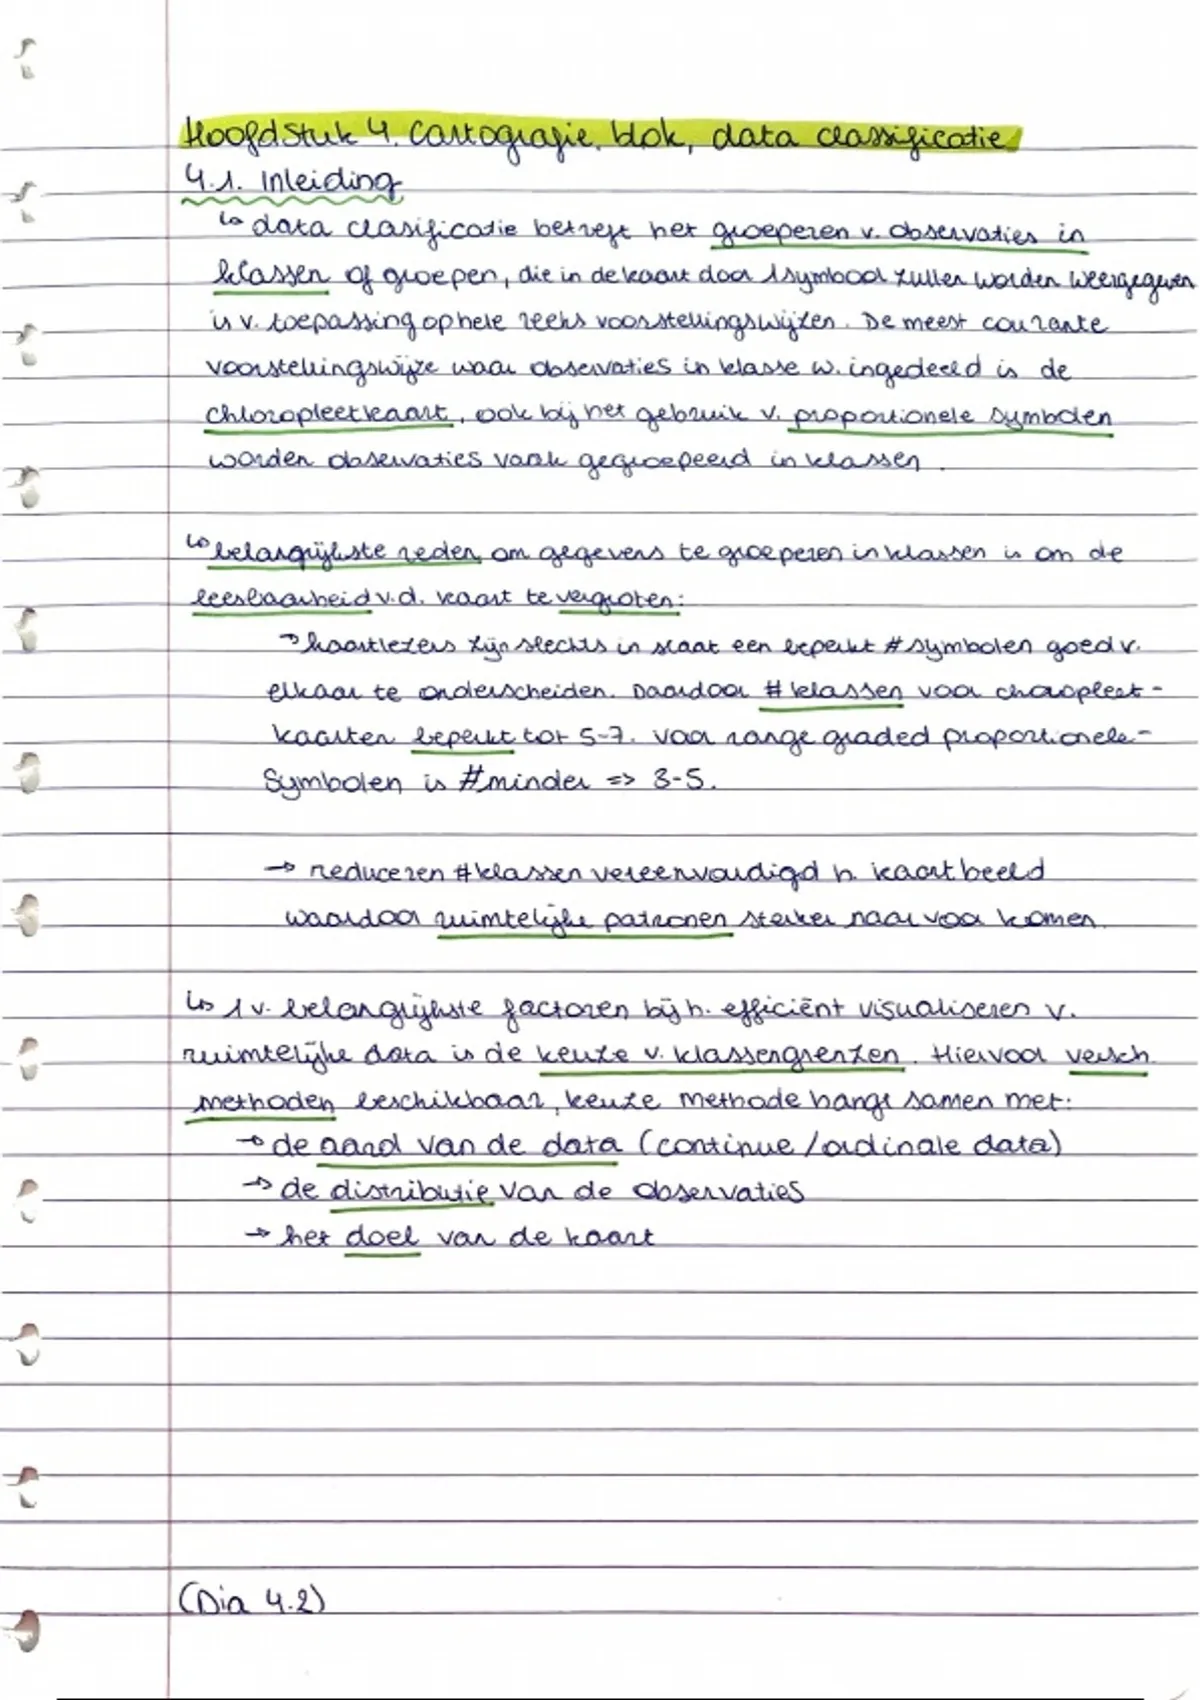 Hoofdstuk 4. Cartografie. blok, data classificatie
4.1. Inleiding
↳ data clasificatie betreft het groeperen v. observaties in
klassen of groepen, die in de kaart door 1 symbool zullen worden weergegeven
is v. toepassing op hele reeks voorstellingswijzen. De meest courante
voorstellingswijze waar observaties in klasse w. ingedeeld is de
chloropleetkaart, ook bij het gebruik v. proportionele symbolen
worden observaties vaak gegroepeerd in klassen.
↳ belangrijkste reden om gegevens te groeperen in klassen is om de
leesbaarheid v.d. kaart te vergroten:
→ kaartlezers zijn slechts in staat een beperkt # symbolen goed v.
elkaar te onderscheiden. Daardoor # klassen voor choropleet-
kaarten beperkt tot 5-7. voor range graded proportionele-
symbolen is # minder => 3-5.
→ reduceren # klassen vereenvoudigd h. kaartbeeld
waardoor ruimtelijke patronen sterker naar voor komen.
↳ 1 v. belangrijkste factoren bij h. efficiënt visualiseren v.
ruimtelijke data is de keuze v. klassengrenzen. Hiervoor versch.
methoden beschikbaar, keuze methode hangt samen met:
→ de aard van de data (continue/ordinale data)
→ de distributie van de observaties
→ het doel van de kaart
(Dia 4.2)